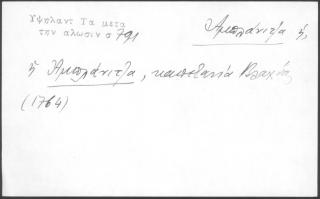 Υψηλαντ Τα μετα
την αλωσιν σ 791
Ἀμπλάνιτζα ἡ,
ἡ Ἀμπλάνιτζα, καπετανία Βλαχίας
(1764)